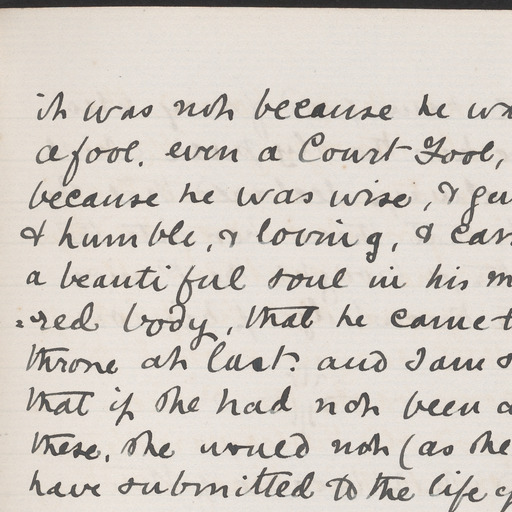 it was not because he wa
a fool, even a Court Fool,
because he was wise, & gen
& humble, & loving, & car
a beautiful soul in his m
=red body, that he came t
throne at last: and I am s
that if she had not been a
these, she would not (as she
have submitted to the life o